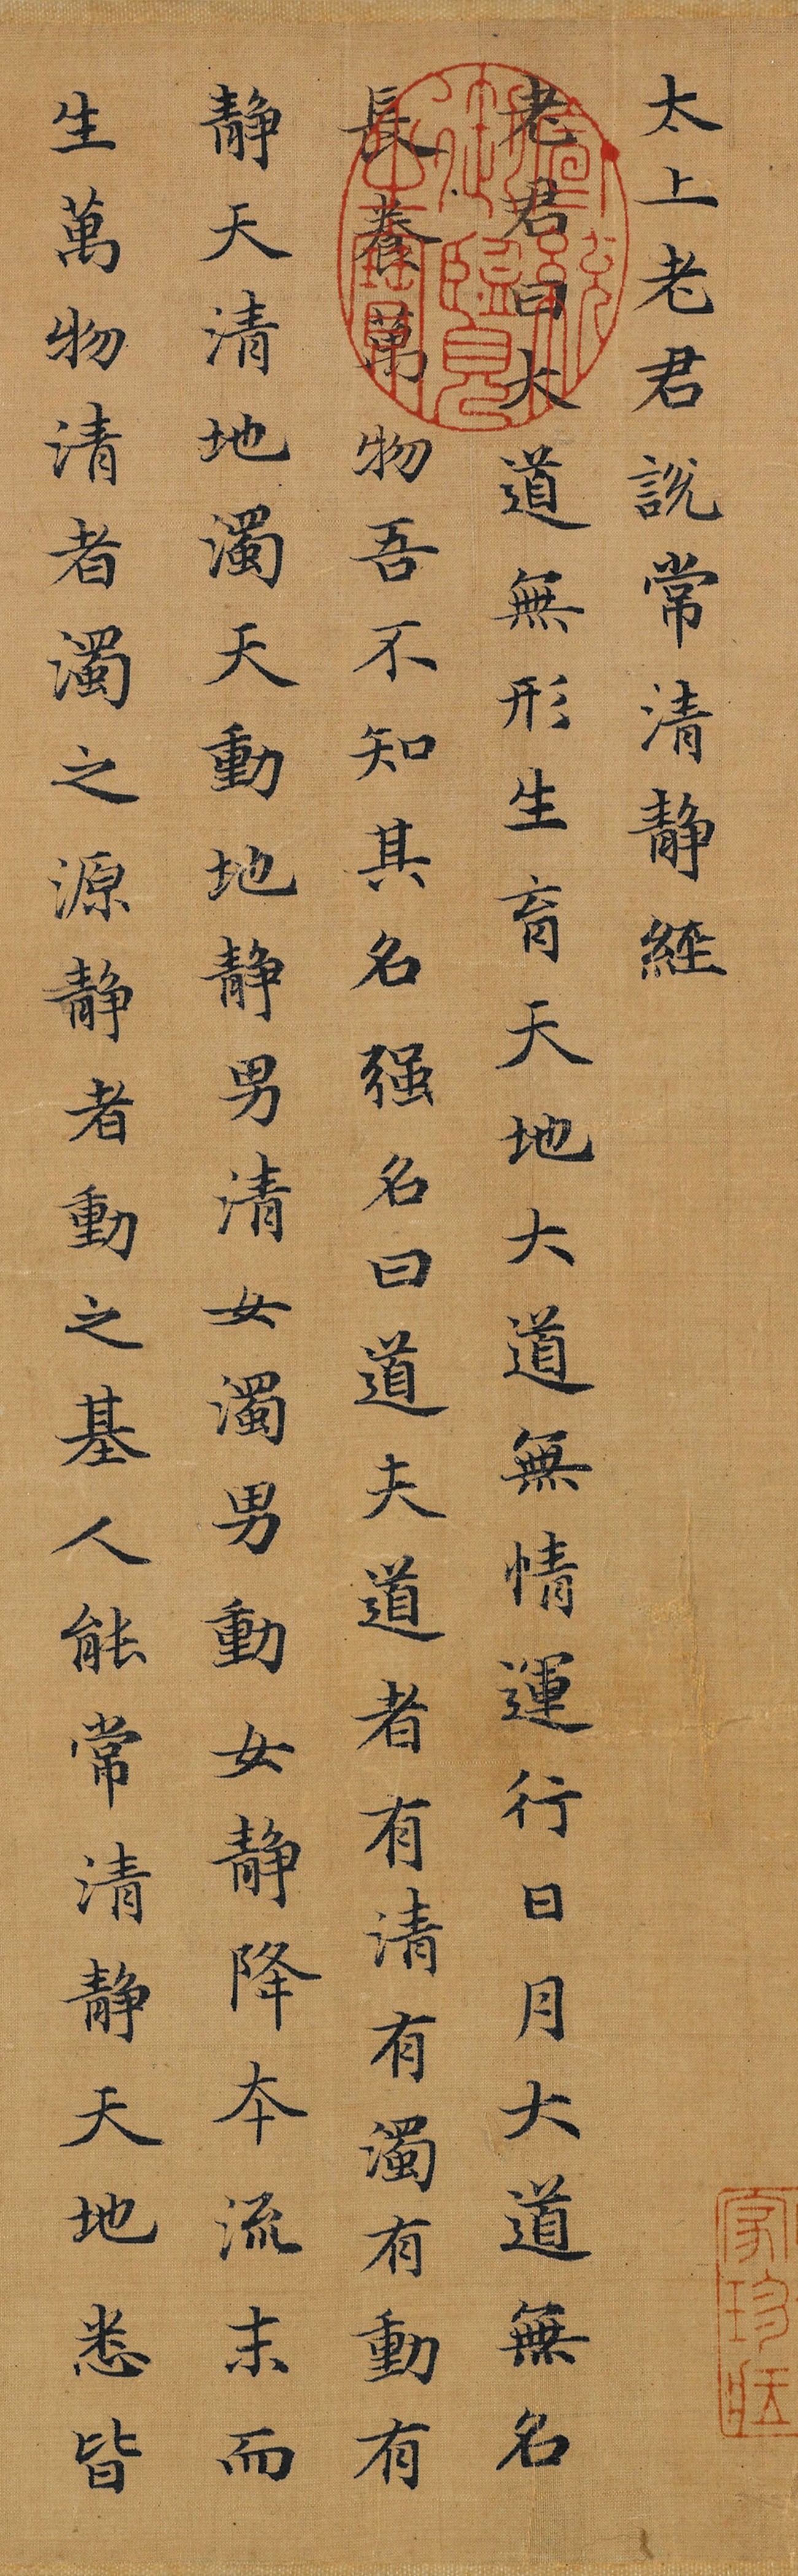 太上老君說常清靜經
老君曰大道無形生育天地大道無情運行日月大道無名
長養萬物吾不知其名强名曰道夫道者有清有濁有動有
靜天清地濁天動地靜男清女濁男動女靜降本流末而
生萬物清者濁之源靜者動之基人能常清靜天地悉皆
宣統御覽之寶
家珍